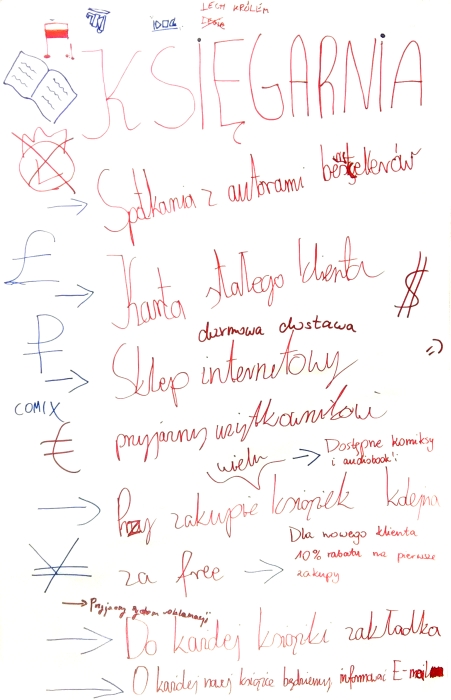 LECH KRÓLEM
KSIĘGARNIA
Spotkania z autorami bestsellerów
Karta stałego klienta
darmowa dostawa
Sklep internetowy
przyjazny użytkownikowi
COMIX
wielu
Dostępne komiksy
i audiobooki
Przy zakupie książek kolejna
za free
Dla nowego klienta
10% rabatu na pierwsze
zakupy
Przyjazny system reklamacji
Do każdej książki zakładka
O każdej nowej książce będziemy informować E-mail